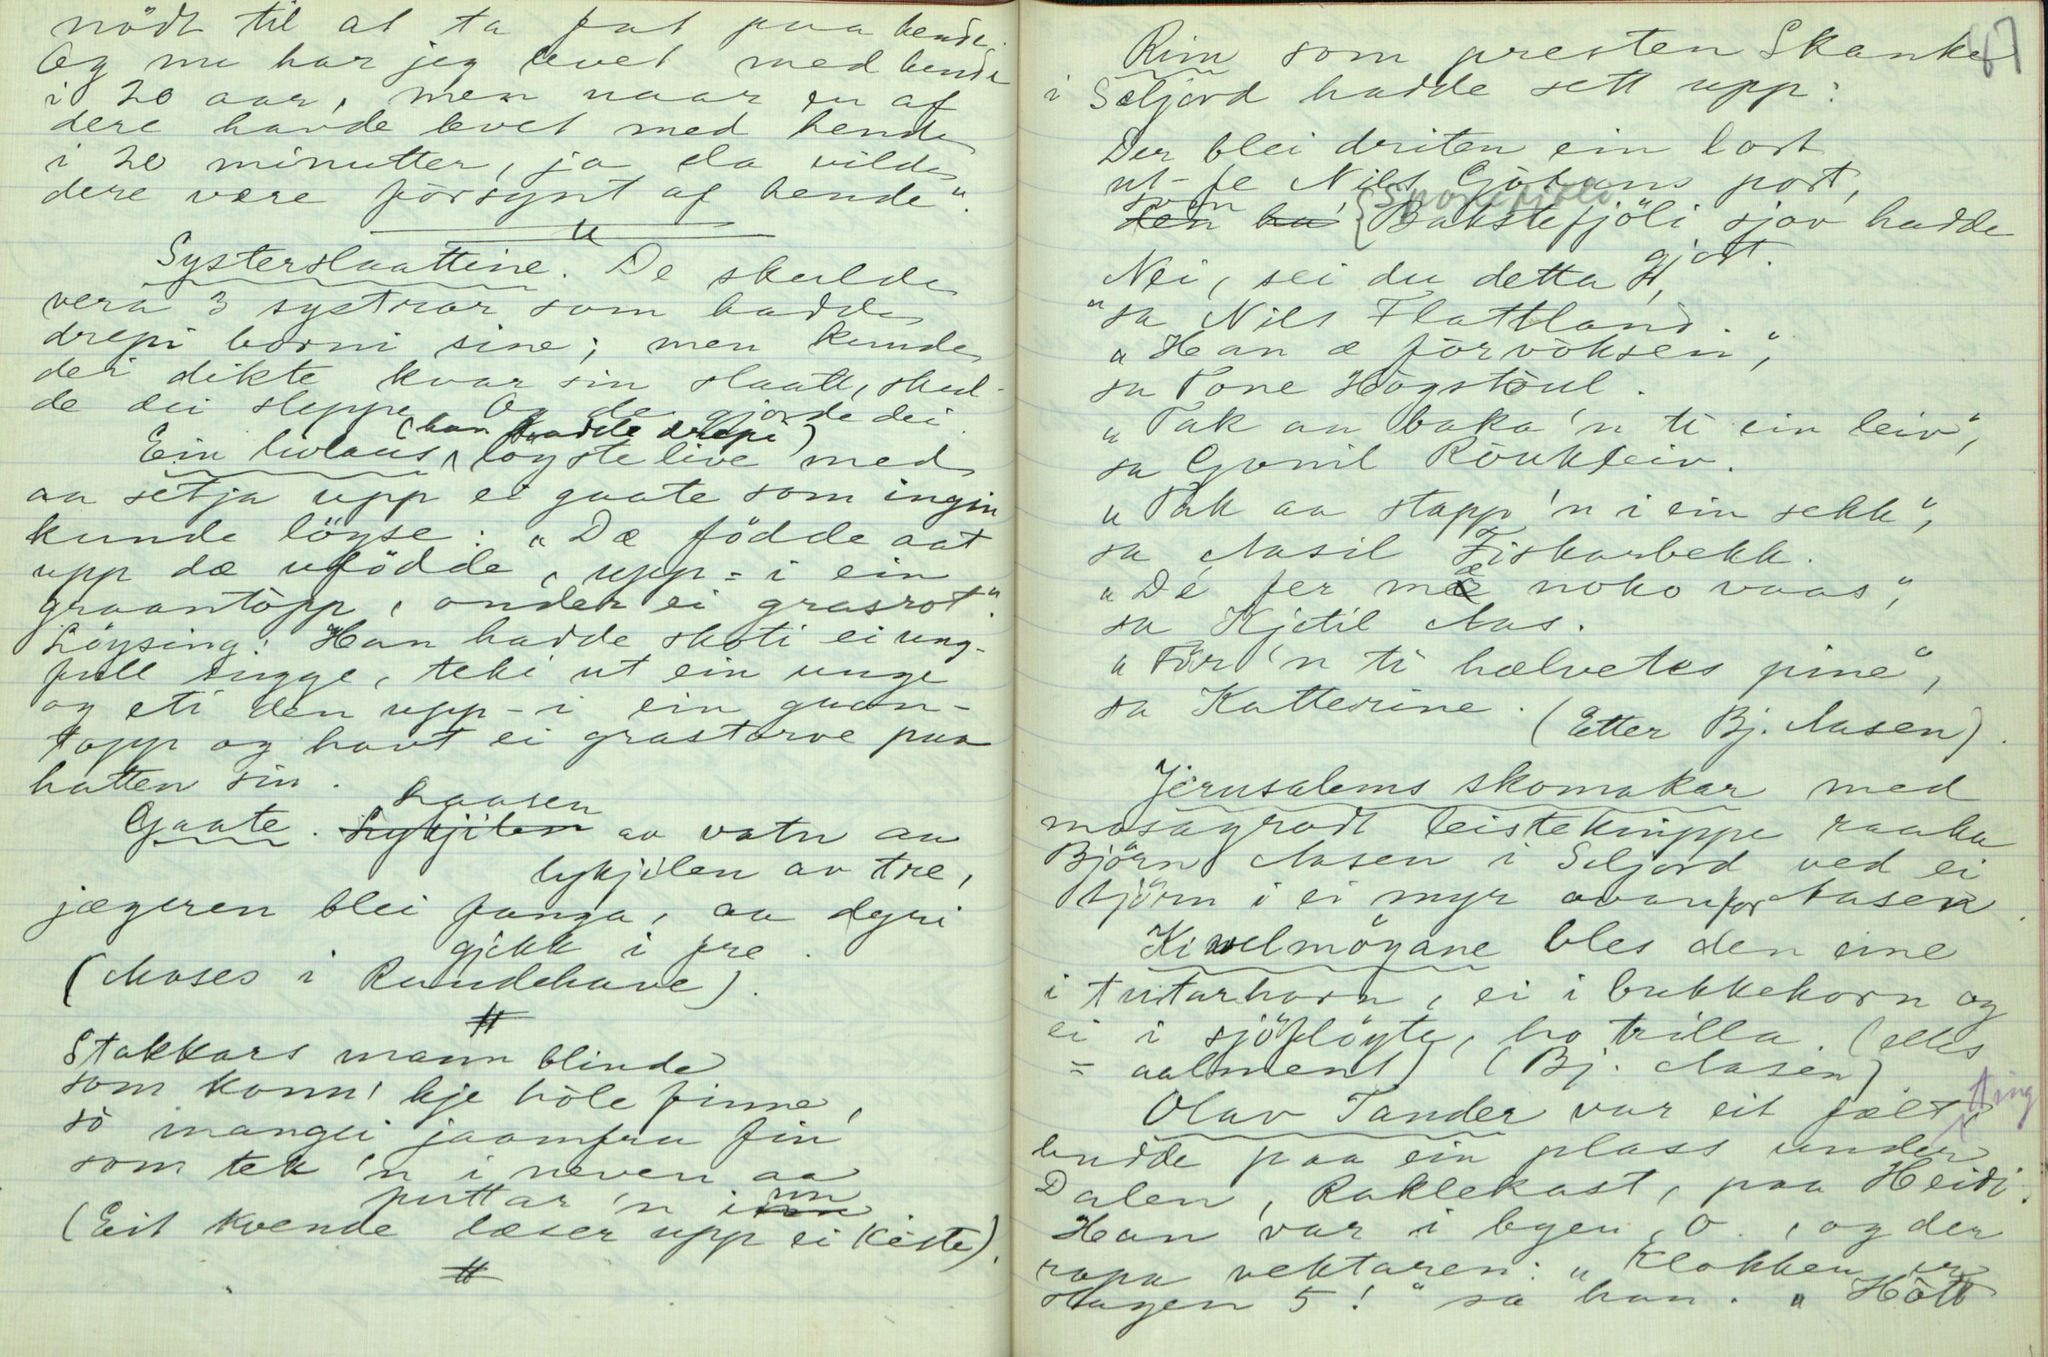 nödt til at ta fat paa hende.
Og nu har jeg levet med hende
i 20 aar, men naar en af
dere havde levet med hende
i 20 minutter, ja da vilde
dere være forsynt af hende".
Systerslaattine. De skulde
vera 3 systrar som hadde
drepi borni sine; men kunde
dei dikte kvar sin slaatt, skul-
de dei sleppe. Og de gjorde dei.
(han hadde drepi)
Ein livlaus løyste live med
aa setja upp ei gaate som ingin
kunde löyse: "Dæ födde aat
upp dæ ufödde, upp-i ein
graantòpp, onder ei grasrot".
Löysing: Han hadde skoti ei ung-
full bugge, teki ut ein unge
og eti den upp-i ein gran-
topp og havt ei grastorve paa
hatten sin.
Gaate. Laasen av vatn aa
lykjilen av tre,
jægeren blei fanga, aa dyri
gjekk i fre.
(Moses i Raudehave).
Stakkars mann blinde
som konn' kje hòle finne,
sò mangei jaamfru fin
som tek 'n i neven aa
puttar 'n inn
(Eit kvende læser upp ei kiste).
67
Rim som presten Skanke
i Seljord hadde sett upp:
Der blei driten ein lort
ut-fe Nils Gòtans port,
som Bakstefjöli sjov hadde
gjort.
Nei, sei du detta A,
"sa Nils Flattland.
"Han æ fòrvòksen",
sa Tone Hògstòul.
"Tak aa baka 'n ti ein leiv",
sa Gunil Ròukleiv.
"Tak aa stapp 'n i ein sekk",
sa Aasil Fiskarbekk.
"De fer mæ noko vaas",
sa Kjetil Aas.
"För 'n ti hælvetes pine",
sa Katterine.
(Etter Bj. Aasen).
Jerusalems skomakar med
mosagrodt leisteknippe raaka
Björn Aasen i Seljord ved ei
tjörn i ei myr ovanfor Aasen.
Kivelmöyane bles den eine
i tutarhorn, ei i bukkehorn og
ei i sjöflöyte, ho trilla. (elles
= aalment) (Bj. Aasen)
Olav Tander var eit fælt
budde paa ein plass under
Dalen, Raklekast, paa Heidi.
Han var i byen, O., og der
ropa vektaren: "Klokken er
slagen 5!" sa han. "Hòtt